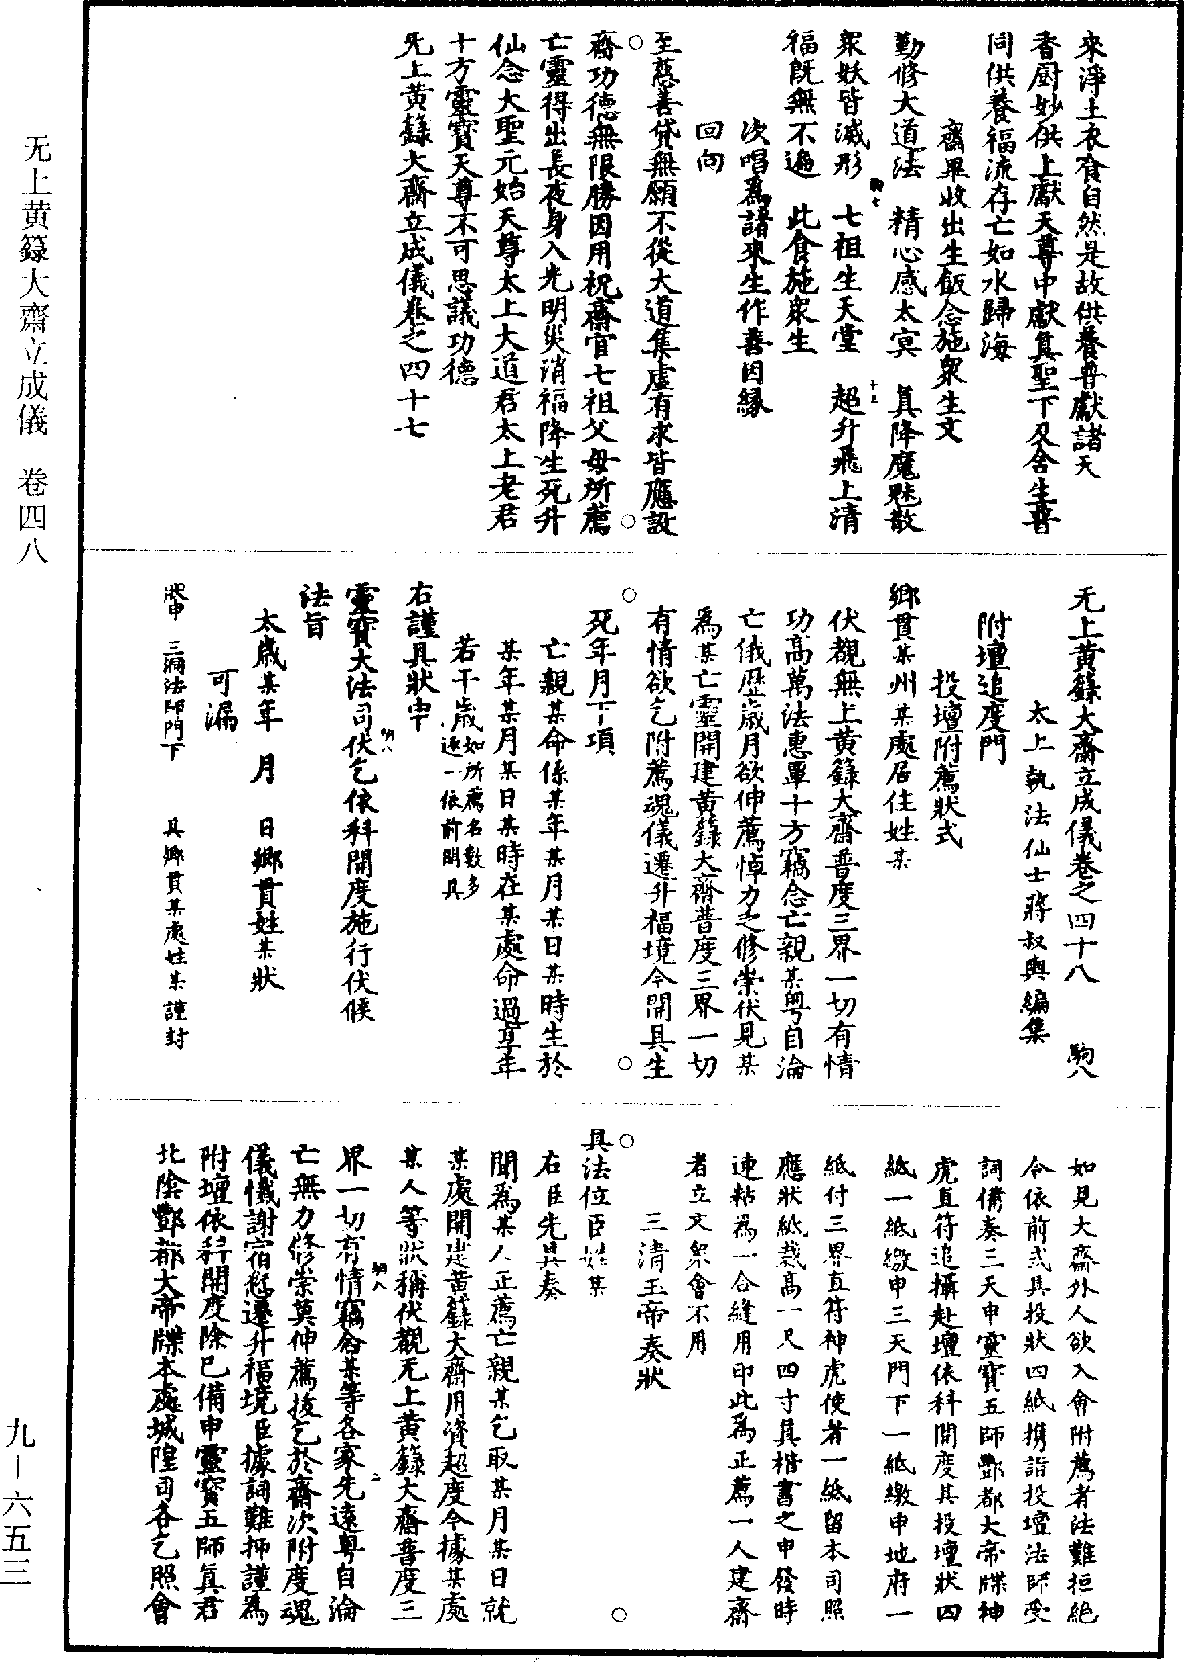 來淨土衣食自然是故供養尊獻諸天
香厨妙供上獻天尊中獻眞聖下及含生普
同供養福流存亡如水歸海
齋畢收出生飯念施衆生文
勤修大道法　精心感太冥　眞降魔魅散
衆妖皆滅形　七祖生天堂　超升飛上清
福旣無不遍　此食施衆生
次唱爲諸來生作善因縁
回向
至慈善貸無願不從大道集虛有求皆應設
齋功德無限勝因用祝齋官七祖父母所薦
亡靈得出長夜身入光明災消福降生死升
仙念大聖元始天尊太上大道君太上老君
十方靈寶天尊不可思議功德
无上黄籙大齋立成儀卷之四十七
无上黄籙大齋立成儀卷之四十八　駒八
太上執法仙士蔣叔輿編集
附壇追度門
投壇附薦狀式
鄉貫某州某處居住姓某
伏覩無上黄籙大齋普度三界一切有情
功高萬法惠覃十方竊念亡親某粤自淪
亡俄歷歲月欲伸薦悼力乏修崇伏見某
爲某亡靈開建黄籙大齋普度三界一切
有情欲乞附薦魂儀遷升福境今開具生
死年月下項
亡親某命係某年某月某日某時生於
某年某月某日某時在某處命過享年
若干歲如所薦名數多逐一依前開具
右謹具狀申
靈寶大法司伏乞依科開度施行伏候
法旨
太歲某年　月　日鄉貫姓某狀
可漏
狀申　三洞法師門下　具鄉貫某處姓某謹封
如見大齋外人欲入會附薦者法難拒絶
令依前式具投狀四紙携詣投壇法師受
詞備奏三天申靈寶五師酆都大帝牒神
虎直符追攝赴壇依科開度其投壇狀四
紙一紙繳申三天門下一紙繳申地府一
紙付三界直符神虎使者一紙留本司照
應狀紙裁高一尺四寸具楷書之申發時
連粘爲一合縫用印此爲正薦一人建齋
者立文衆會不用
三清玉帝奏狀
具法位臣姓某
右臣先具奏
聞爲某人正薦亡親某乞取某月某日就
某處開建黄籙大齋用資超度今據某處
某人等狀稱伏覩无上黄籙大齋普度三
界一切有情竊念某等各家先遠粤自淪
亡無力修崇莫伸薦拔乞於齋次附度魂
儀懺謝宿愆遷升福境臣據詞難抑謹爲
附壇依科開度除已備申靈寶五師眞君
北陰酆都大帝牒本處城隍司各乞照會
无上黄籙大齋立成儀　卷四八
九—六五三